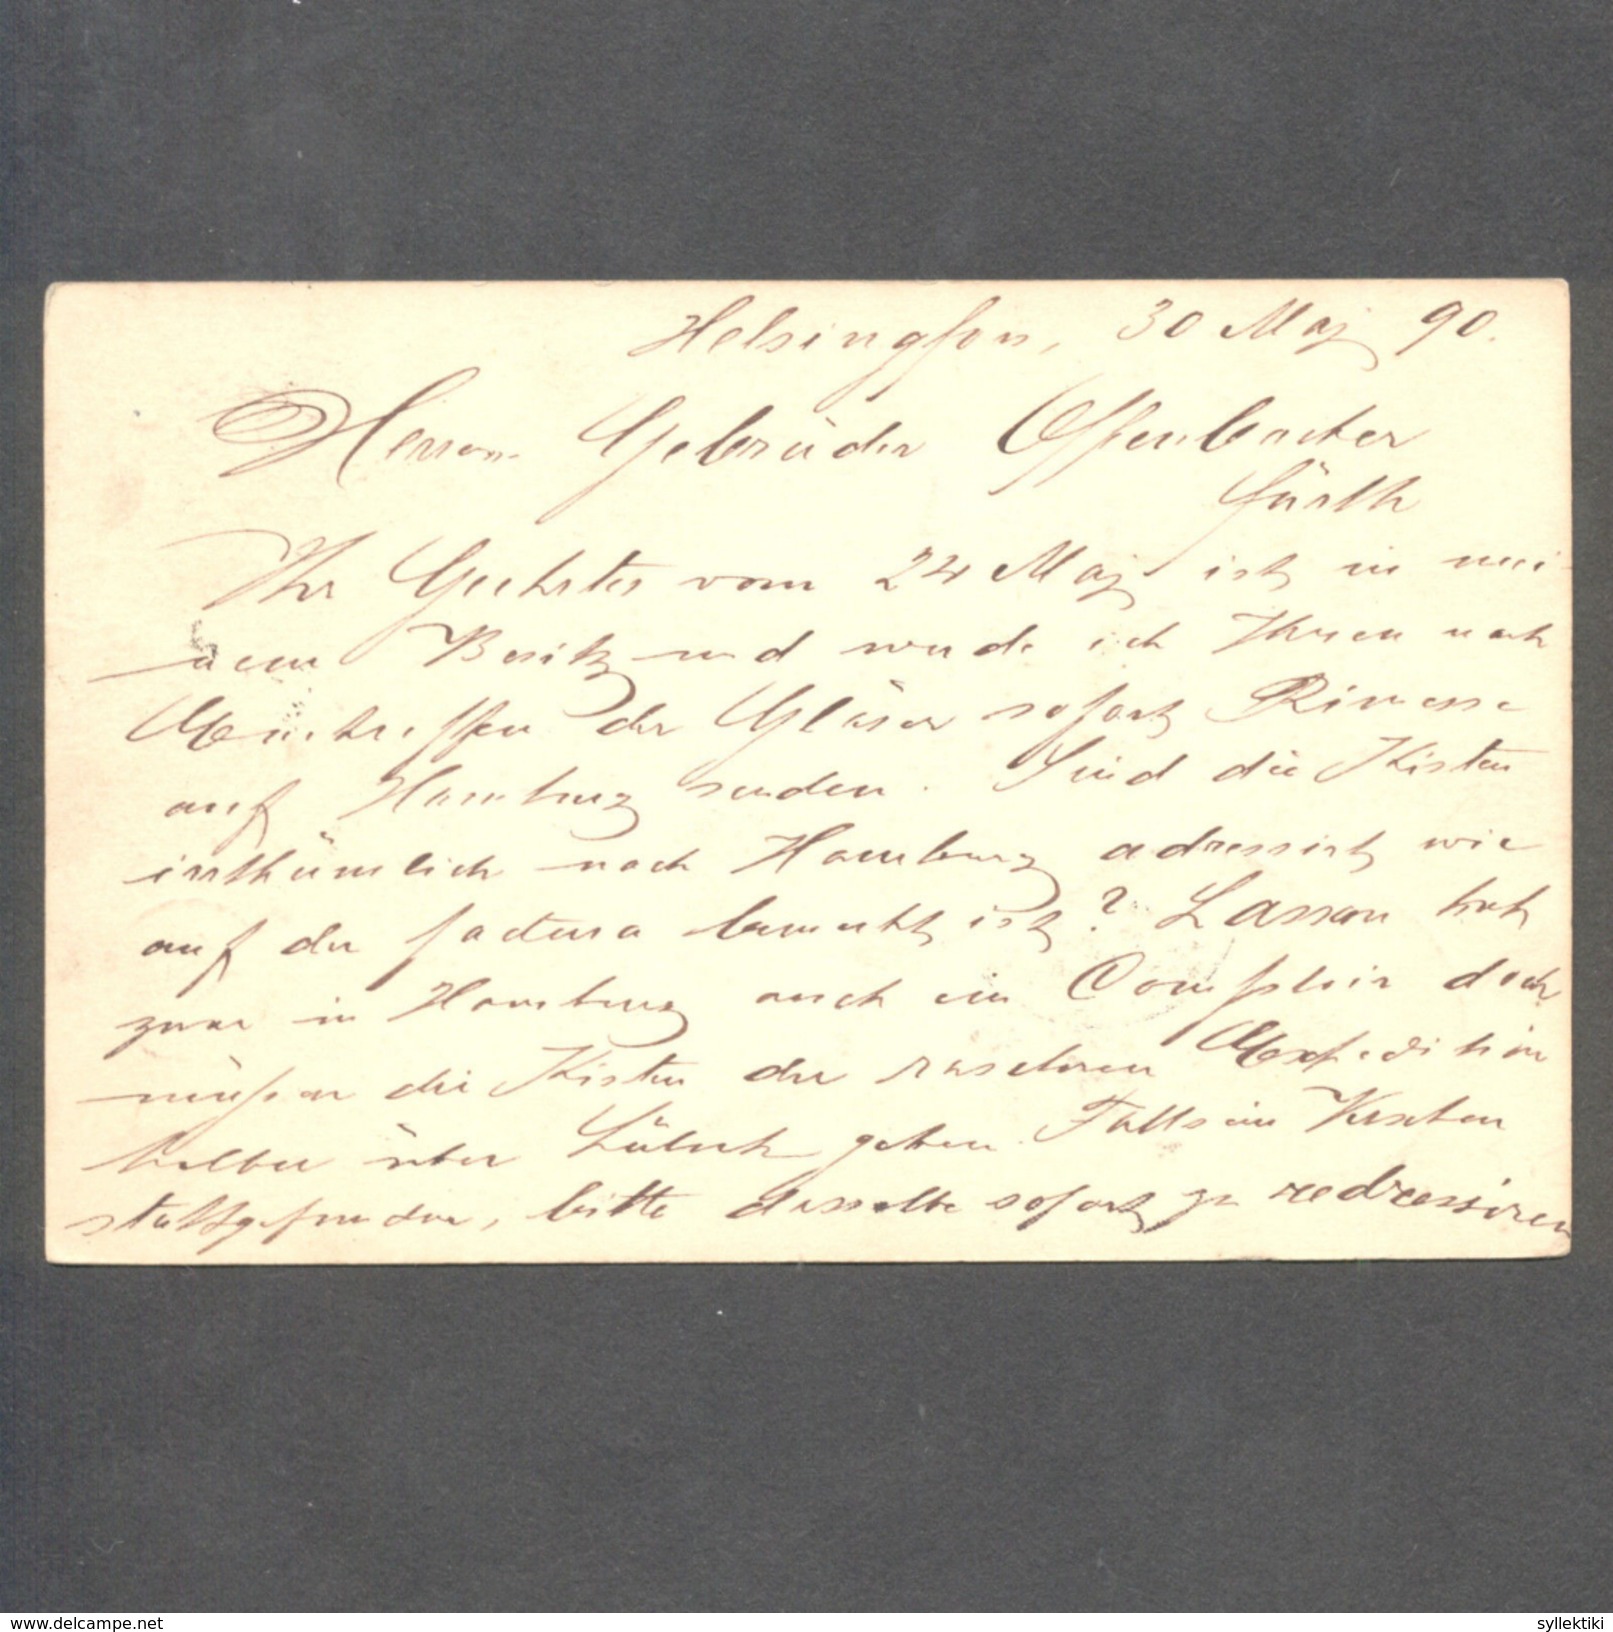 Helsingfors, 30 Maj 90.
Herren Gebrüder Offenbacher
Fürth
Ihr Geehrtes vom 24 Maj ist in mei-
nem Besitz und werde ich Ihnen nach
Eintreffen der Gläser sofort Rimesse
auf Hamburg senden. Sind die Kisten
irrthümlich nach Hamburg adressirt wie
auf der factura bemerkt ist? Lassen hat
zwar in Hamburg auch ein Comptoir doch
müssen die Kisten der rascheren Expedition
halber über Lübeck gehen. Falls ein Versehen
stattgefunden, bitte dasselbe sofort zu redressiren
delcampe.net
syllektiki